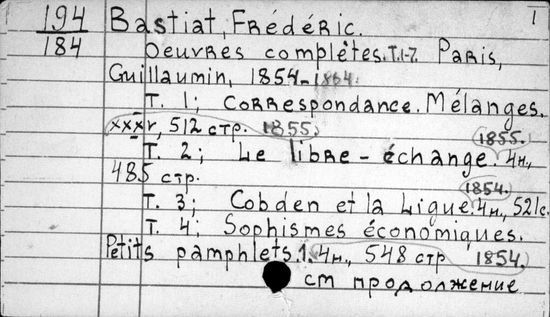 194 Bastiat, Frédéric. 1
184 Oeuvres complètes. T.1-7. Paris,
Guillaumin, 1854-1864.
T. 1; Correspondance. Mélanges.
xxxr, 512 стр. 1855.
1855.
T. 2; Le libre-échange. 4н.,
485 стр.
1854.
T. 3; Cobden et la Ligue. 4н., 521с.
T. 4; Sophismes économiques.
Petits pamphlets. 1. 4н., 548 стр 1854.
см продолжение